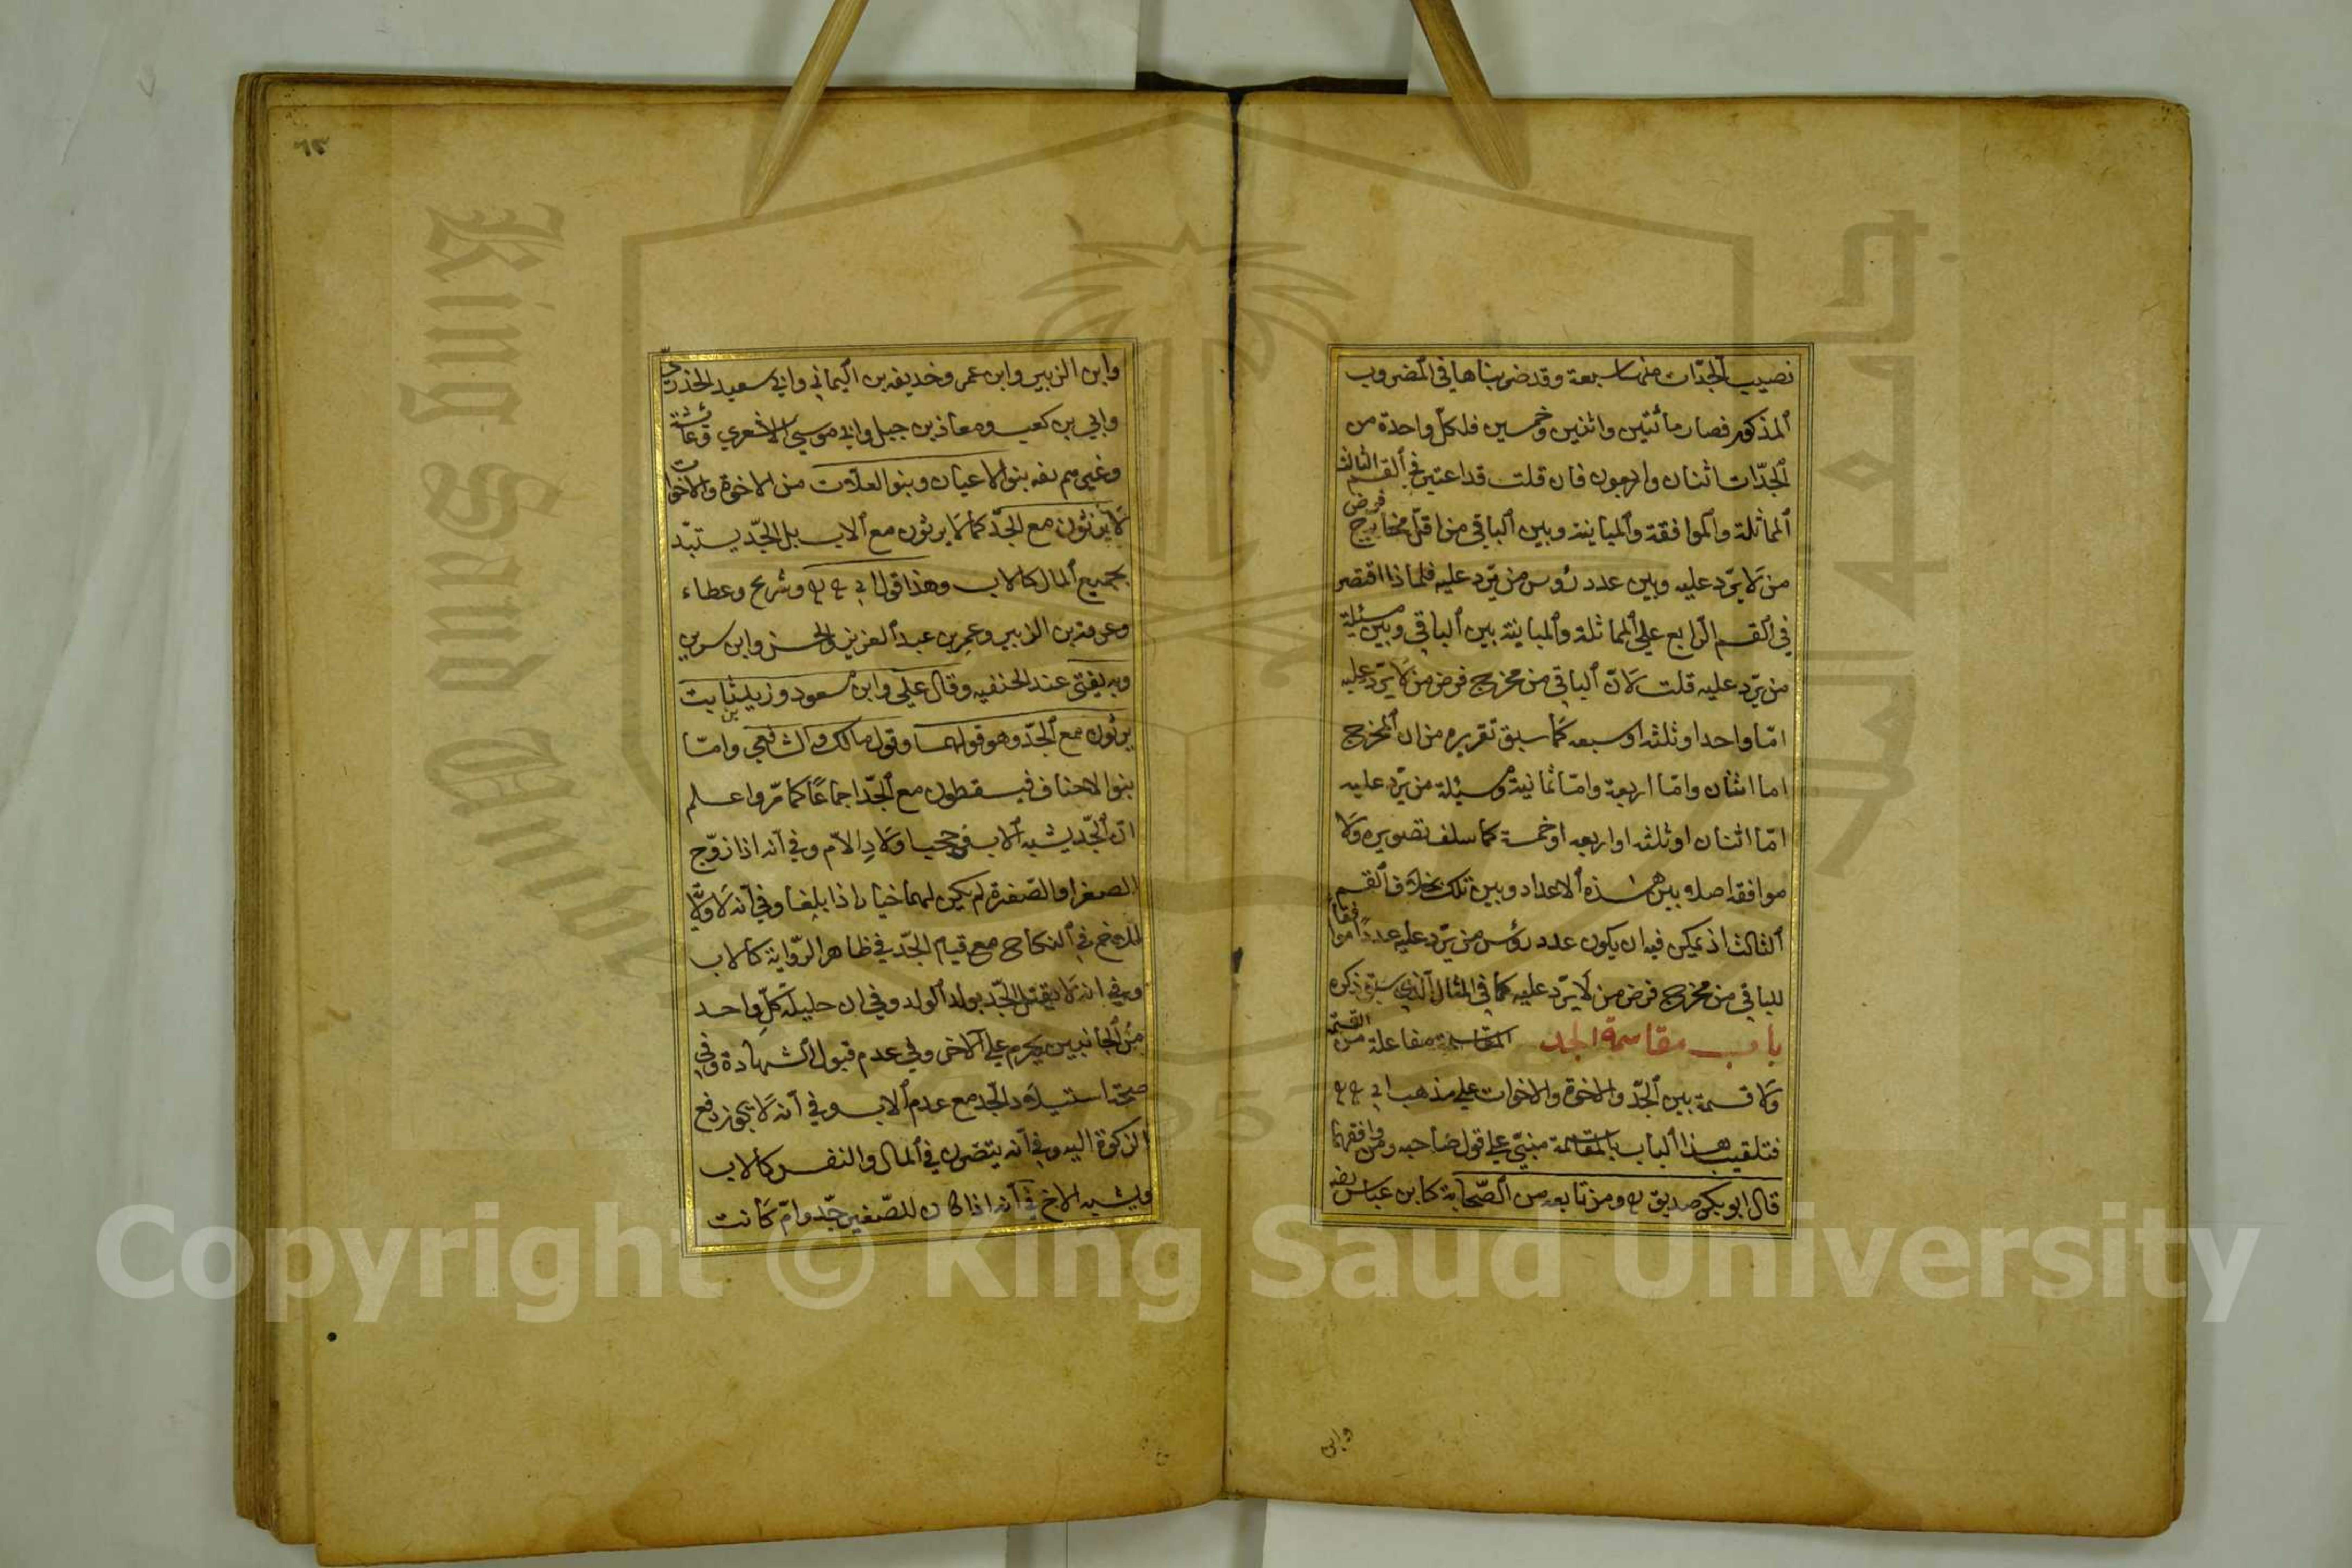 نصيب الجدّات منها سبعة وقد ضربناها في المضروب
المذكور فصار مأتين واثنين وخمسين فلكلّ واحدة من
الجدّات اثنان واربعون فان قلت قد اعتبر في القسم الثالث
المماثلة والموافقة والمباينة وبين الباقي من اقلّ مخارج فرض
من لا يرّد عليه وبين عدد رؤس من يرّد عليه فلماذا اقتصر
في القسم الرابع علي المماثلة والمباينة بين الباقي وبين مسئلة
من يرّد عليه قلت لانّ الباقي من مخرج فرض من لا يرّد عليه
امّا واحد او ثلثه او سبعه كما سبق تقريره من ان المخرج
اما اثنان وامّا اربعة وامّا ثمانية ومسئلة من يرّد عليه
امّا اثنان او ثلثه او اربعه او خمسة كما سلف تصويره ولا
موافقه اصلا بين هذه الاعداد وبين تلك بخلاف القسم
الثالث اذ يمكن فيه ان يكون عدد رؤس من يرّد عليه عدداً موافقاً
للباقي من مخرج فرض من لا يرّد عليه كما في المثال الذي سبق ذكره
باب مقاسمة الجد المقاسمة مفاعلة من القسمة
ولا قسمة بين الجدّ والاخوة والاخوات علي مذهب ابي ح ح
فتلقيب هذا الباب بالمقاسمة مبنيّ علي قول صاحبيه ومن وافقهما
قال ابو بكر صديق رض ومن تابعه من الصّحابة كابن عباس رضه
وابن
وابن الزبير وابن عمر وخديفه بن اليماني وابي سعيد الخذريّ
وابي بن كعب ومعاذ بن جبل وابي موسي الاشعري وعائشة
وغيرهم رضه بنو الاعيان وبنو العلات من الاخوة والاخوات
لا يرثون مع الجدّ كما لا يرثون مع الاب بل الجدّ يستبدّ
بجميع المال كالاب وهذا قول ابي ح ح وشريح وعطاء
وعروة بن الزبير وعمر بن عبد العزيز والحسن وابن سرين
وبه يفتي عند الحنفيه وقال علي وابن مسعود وزيد بن ثابت
يرثون مع الجدّ وهو قولهما وقول مالك والشافعي وامّا
بنو الاخياف فيسقطون مع الجدّ اجماعاً كما مرّ واعلم
انّ الجدّ يشبه الاب في حجب اولاد الامّ وفي انه اذا زوّج
الصغير او الصّغيرة لم يكن لهما خيار اذا بلغا وفي انه لا ولاية
للاخ في النكاح مع قيام الجدّ في ظاهر الرّواية كالاب
وفي انه لا يقتل الجدّ بولد الولد وفي ان حليلة كلّ واحد
من الجانبين يحرم علي الاخر وفي عدم قبول الشهادة وفي
صحّة استيلاد الجد مع عدم الاب وفي انه لا يجوز دفع
الزكوة اليه وفي انه يتصّرف في المال والنفس كالاب
ويشبه الاخ في انه اذا كان للصّغير جدّ وامّ كانت
Copyright © King Saud University